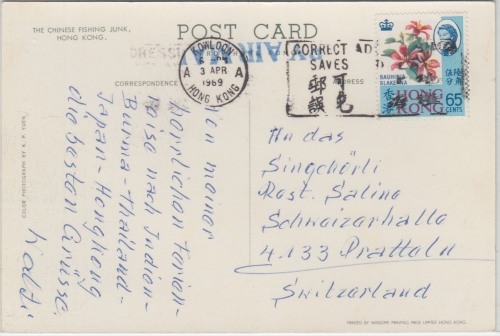 THE CHINESE FISHING JUNK,
HONG KONG.
POST CARD
CORRESPONDENCE
KOWLOON
3 APR
1969
A A
HONG KONG
CORRECT AD
SAVES
郵 可
誤 免
BAUHINIA
BLAKEANA
伍 陸
分 角
香
HONG
KONG
65
CENTS
Von meiner
herrlichen Ferien-
reise nach Indien-
Burma-Thailand-
Japan-Hongkong
die besten Grüsse.
Walti
An das
Singchörli
Rest. Saline
Schweizerhalle
4.133 Pratteln
Switzerland
COLOR PHOTOGRAPH BY K. P. YUEN
PRINTED BY WINSOME PRINTING PRESS LIMITED HONG KONG.